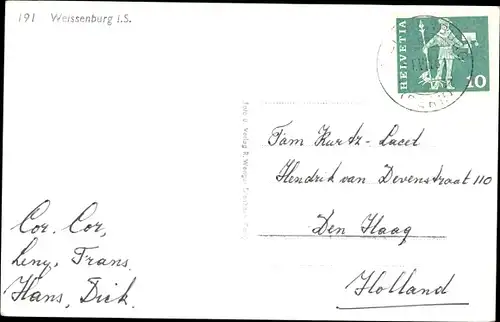 191 Weissenburg i.S.
HELVETIA
10
Fam Kurtz-Lacet
Hendrik van Devenstraat 110
Den Haag
Holland
Cor. Cor,
Leny, Frans
Hans, Dick